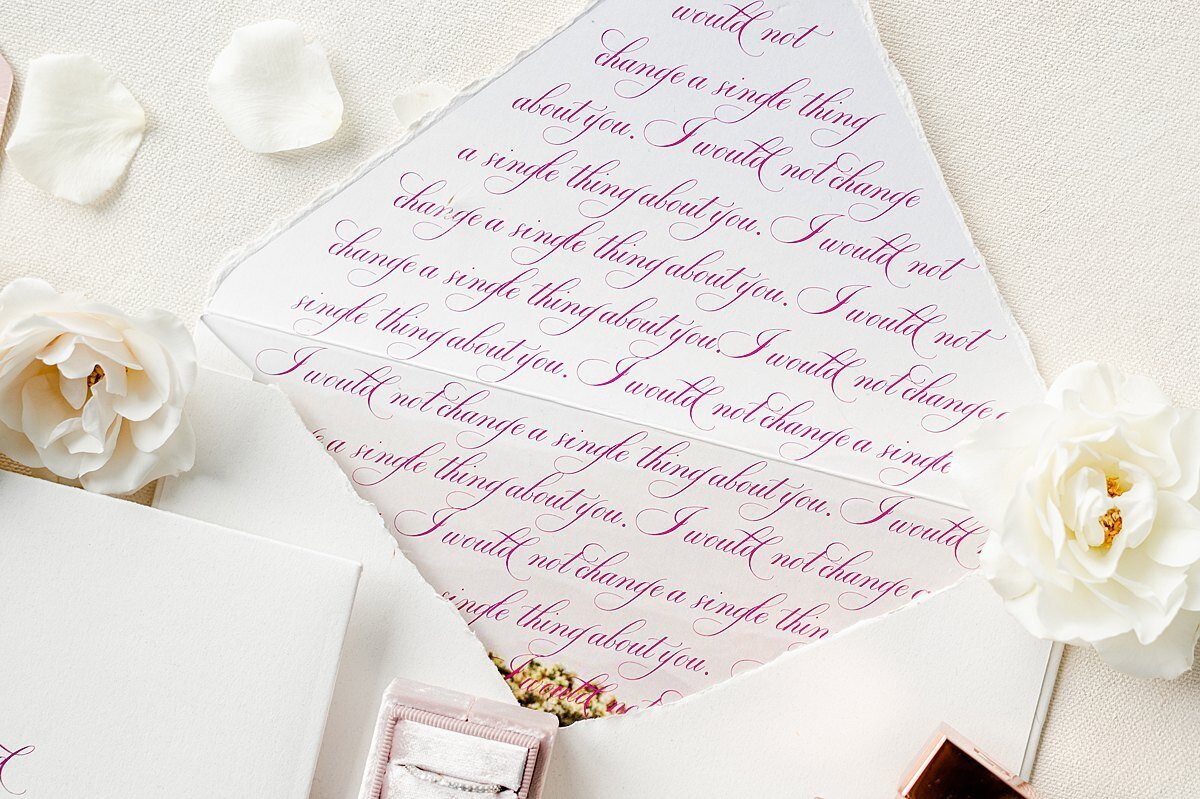 would not
change a single thing
about you. I would not change
a single thing about you. I would not
change a single thing about you. I would not
change a single thing about you. I would not change
single thing about you. I would not change a single
I would not change a single thing about you. I would
a single thing about you. I would not change
I would not change a single thin
single thing about you.
I would not